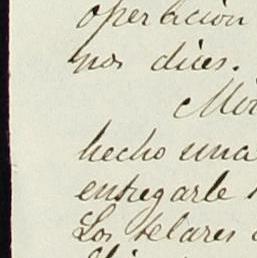 operación
nos dices.
hecho una
entregarle
Los telares